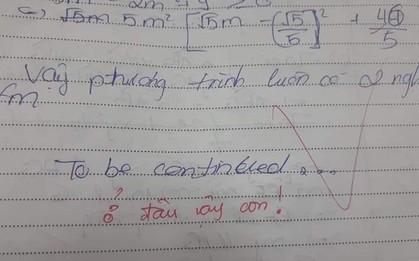 c) √5m 5m² [√5m - (√5/5)]² + 4(1)/5
Vậy phương trình luôn có 2 ngh
m
To be continued....
ở đâu vậy con!